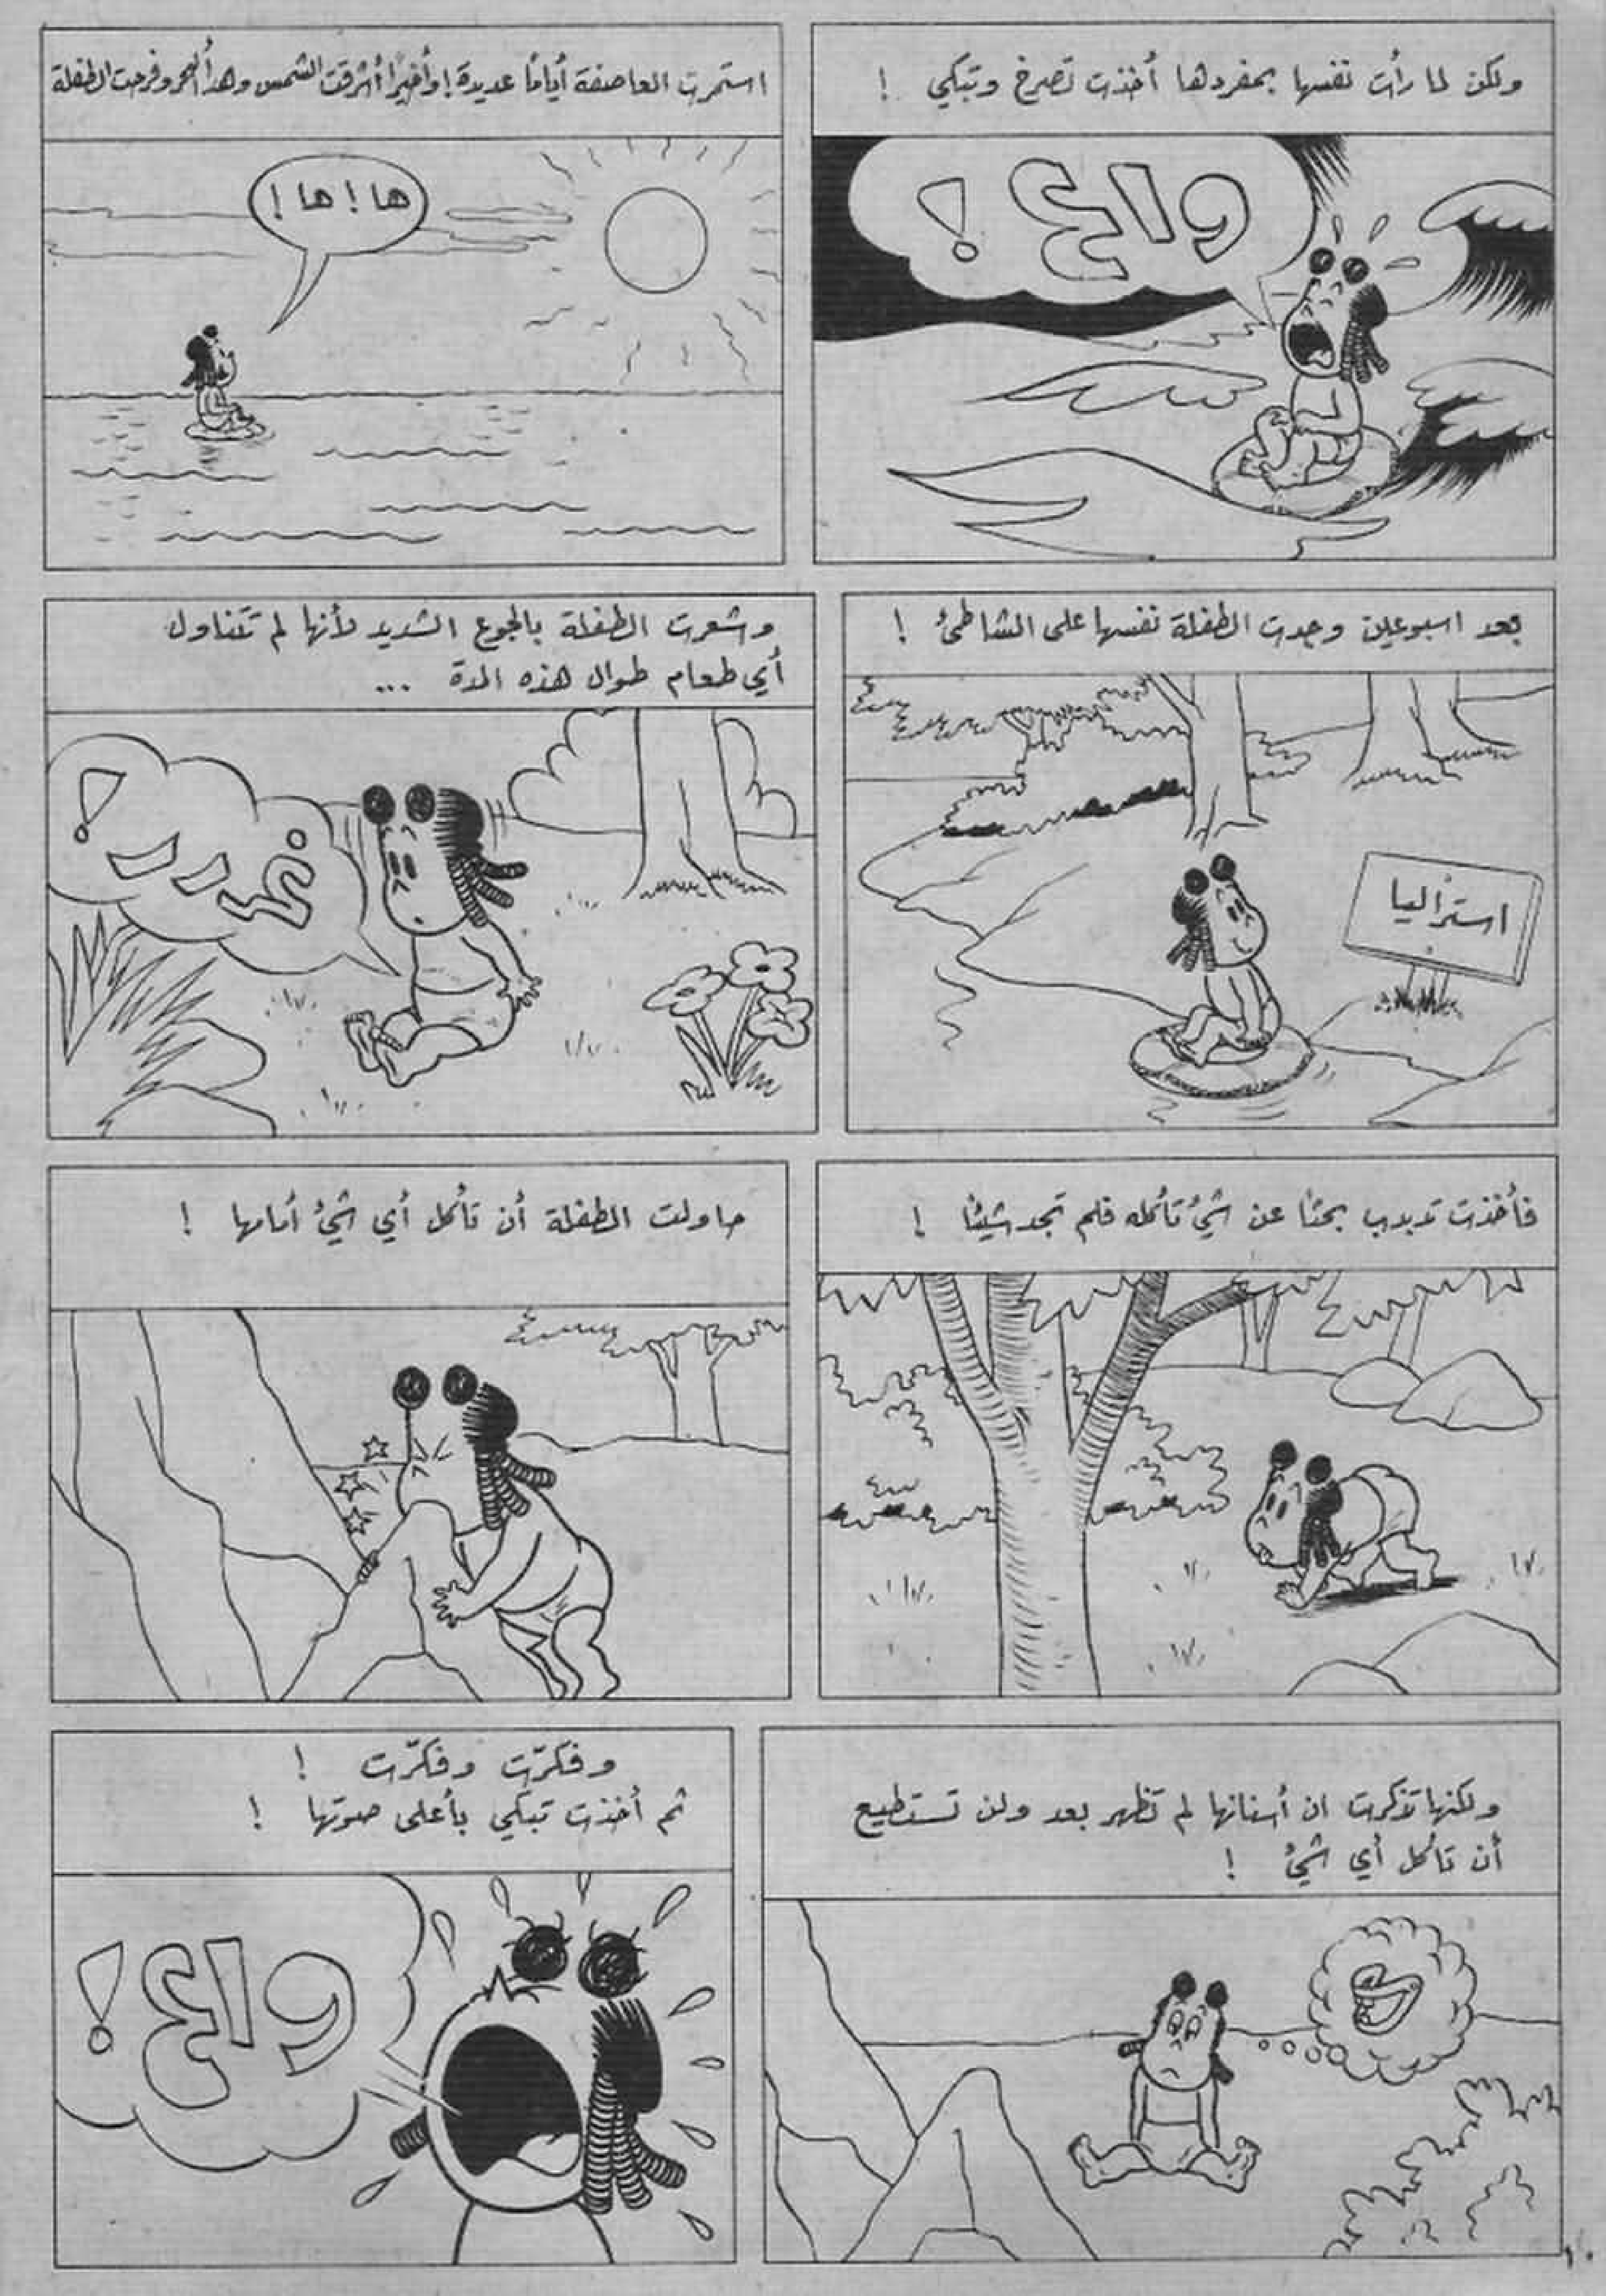 ولكن لما رأت نفسها بمفردها أخذت تصرخ وتبكي !
واع !
استمرت العاصفة أيامًا عديدة ! وأخيرًا أشرقت الشمس وهدأ البحر وفرحت الطفلة
ها ! ها !
بعد اسبوعين وجدت الطفلة نفسها على الشاطئ !
استراليا
وشعرت الطفلة بالجوع الشديد لأنها لم تتناول
أي طعام طوال هذه المدة ...
فأخذت تدبدب بحثا عن شيء تأكله فلم تجد شيئا !
حاولت الطفلة أن تأكل أي شيء أمامها !
ولكنها تذكرت ان أسنانها لم تظهر بعد ولن تستطيع
أن تأكل أي شيء !
وفكّرت وفكّرت !
ثم أخذت تبكي بأعلى صوتها !
واع !
١٠